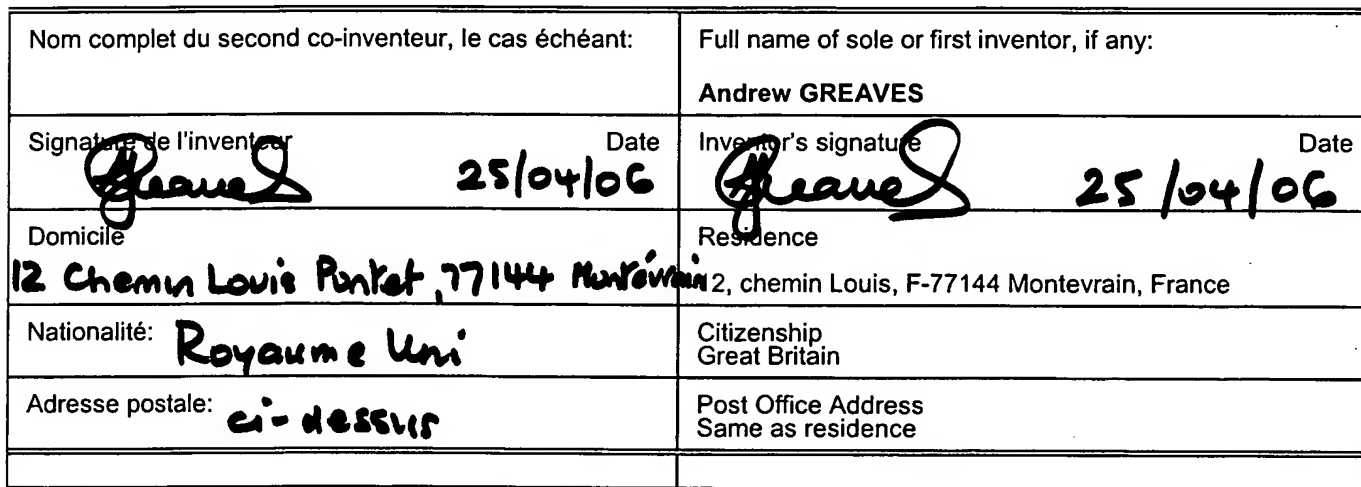 Nom complet du second co-inventeur, le cas échéant:
Full name of sole or first inventor, if any:
Andrew GREAVES
Signature de l'inventeur Date
Greaves 25/04/06
Inventor's signature Date
Greaves 25/04/06
Domicile
12 Chemin Louis Pontet, 77144 Montévrain
Residence
2, chemin Louis, F-77144 Montevrain, France
Nationalité: Royaume Uni
Citizenship
Great Britain
Adresse postale: ci-dessus
Post Office Address
Same as residence